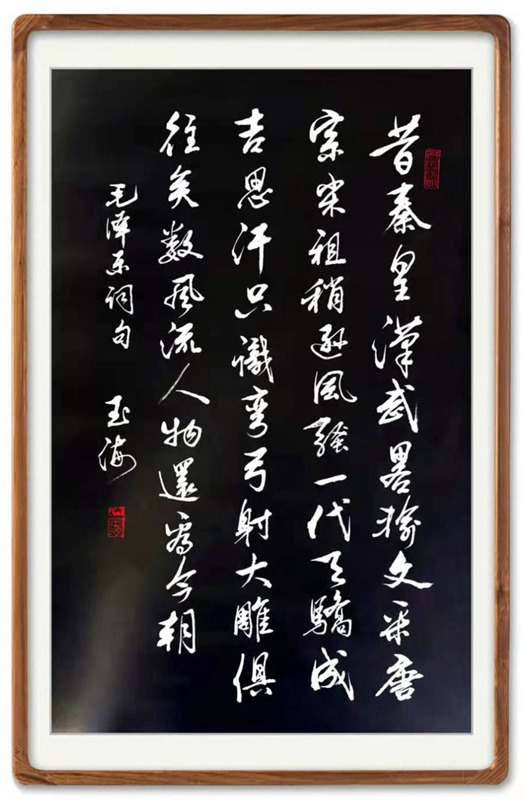 昔秦皇漢武畧输文采唐
宗宋祖稍逊風騷一代天驕成
吉思汗只識弯弓射大雕俱
往矣数風流人物還看今朝
毛泽东词句 玉海